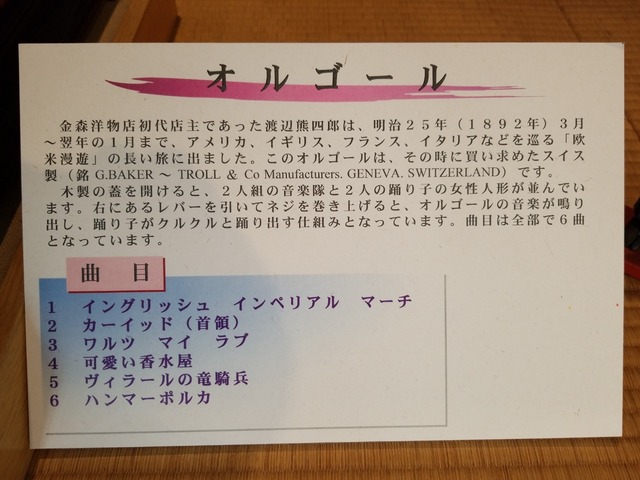 オルゴール
金森洋物店初代店主であった渡辺熊四郎は、明治２５年（１８９２年）３月
～翌年の１月まで、アメリカ、イギリス、フランス、イタリアなどを巡る「欧
米漫遊」の長い旅に出ました。このオルゴールは、その時に買い求めたスイス
製（銘 G.BAKER ～ TROLL & Co Manufacturers. GENEVA. SWITZERLAND）です。
木製の蓋を開けると、２人組の音楽隊と２人の踊り子の女性人形が並んでい
ます。右にあるレバーを引いてネジを巻き上げると、オルゴールの音楽が鳴り
出し、踊り子がクルクルと踊り出す仕組みとなっています。曲目は全部で６曲
となっています。
曲 目
1 イングリッシュ インペリアル マーチ
2 カーイッド（首領）
3 ワルツ マイ ラブ
4 可愛い香水屋
5 ヴィラールの竜騎兵
6 ハンマーポルカ